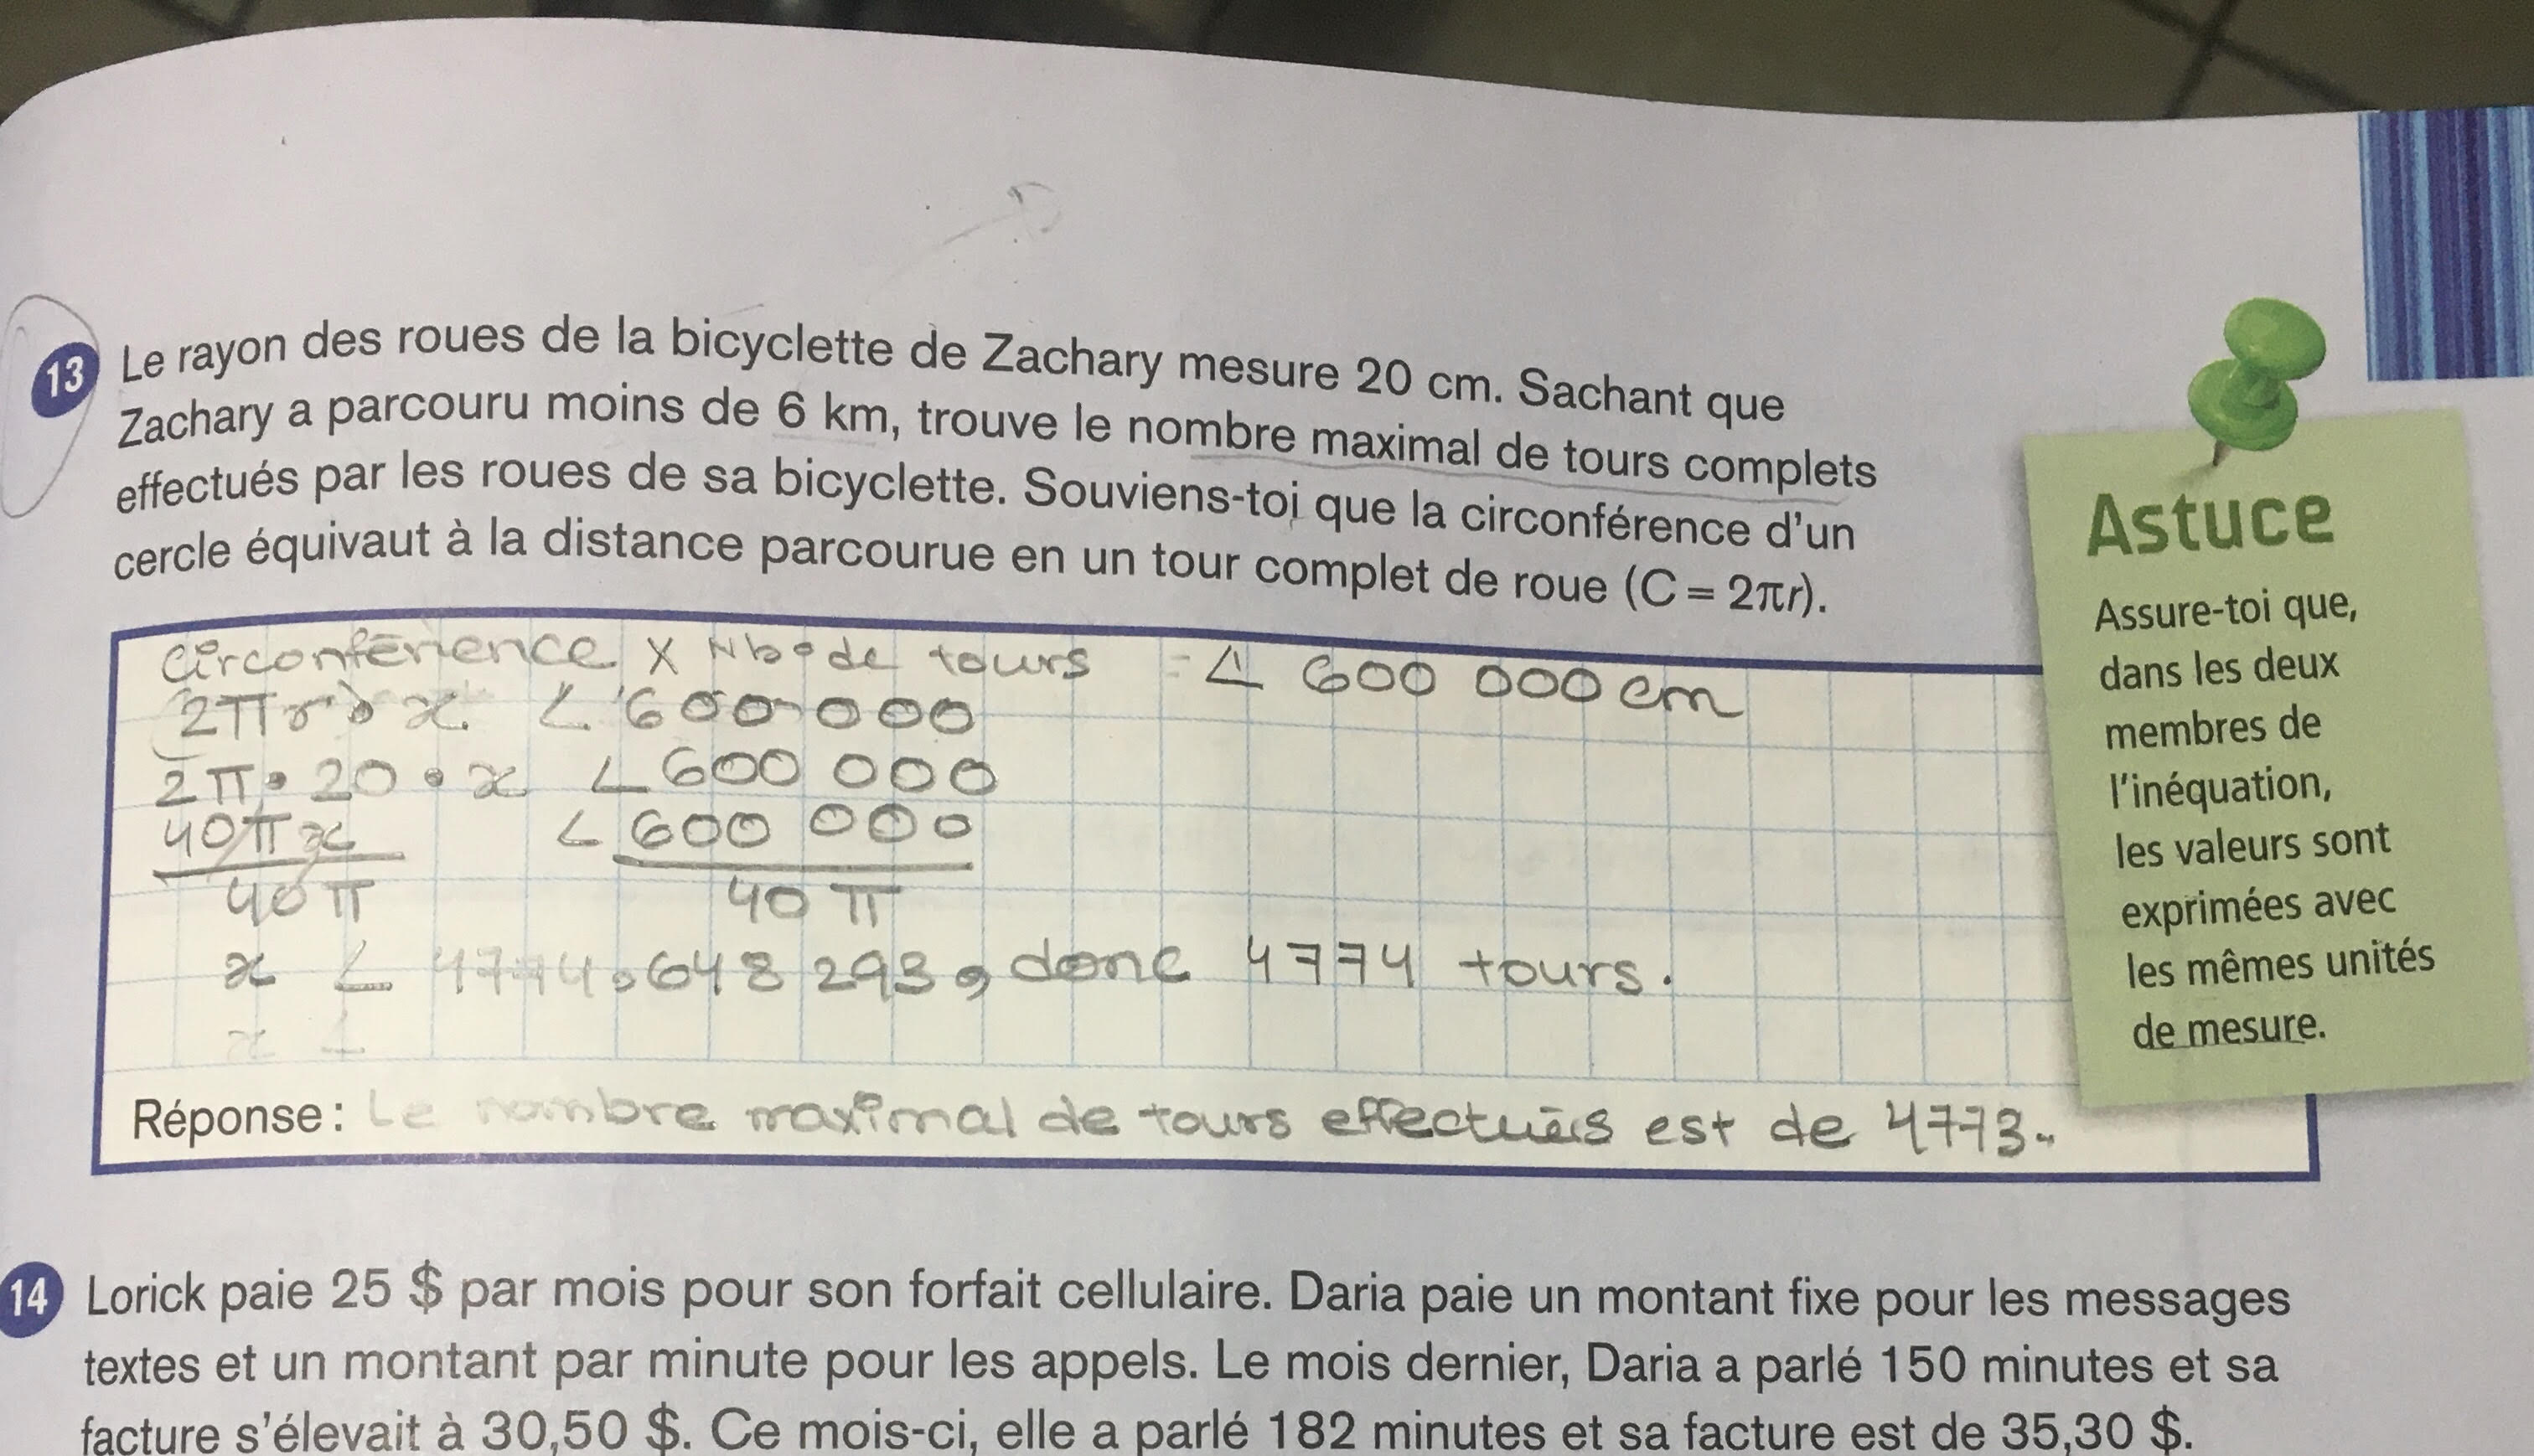 13 Le rayon des roues de la bicyclette de Zachary mesure 20 cm. Sachant que
Zachary a parcouru moins de 6 km, trouve le nombre maximal de tours complets
effectués par les roues de sa bicyclette. Souviens-toi que la circonférence d'un
cercle équivaut à la distance parcourue en un tour complet de roue (C = 2πr).
Circonférence x Nb de tours < 600 000 cm
2πr • x < 600 000
2π • 20 • x < 600 000
40πx < 600 000
40π 40π
x < 4774,648 293, donc 4774 tours.
x <
Réponse : Le nombre maximal de tours effectués est de 4773.
Astuce
Assure-toi que,
dans les deux
membres de
l'inéquation,
les valeurs sont
exprimées avec
les mêmes unités
de mesure.
14 Lorick paie 25 $ par mois pour son forfait cellulaire. Daria paie un montant fixe pour les messages
textes et un montant par minute pour les appels. Le mois dernier, Daria a parlé 150 minutes et sa
facture s'élevait à 30,50 $. Ce mois-ci, elle a parlé 182 minutes et sa facture est de 35,30 $.